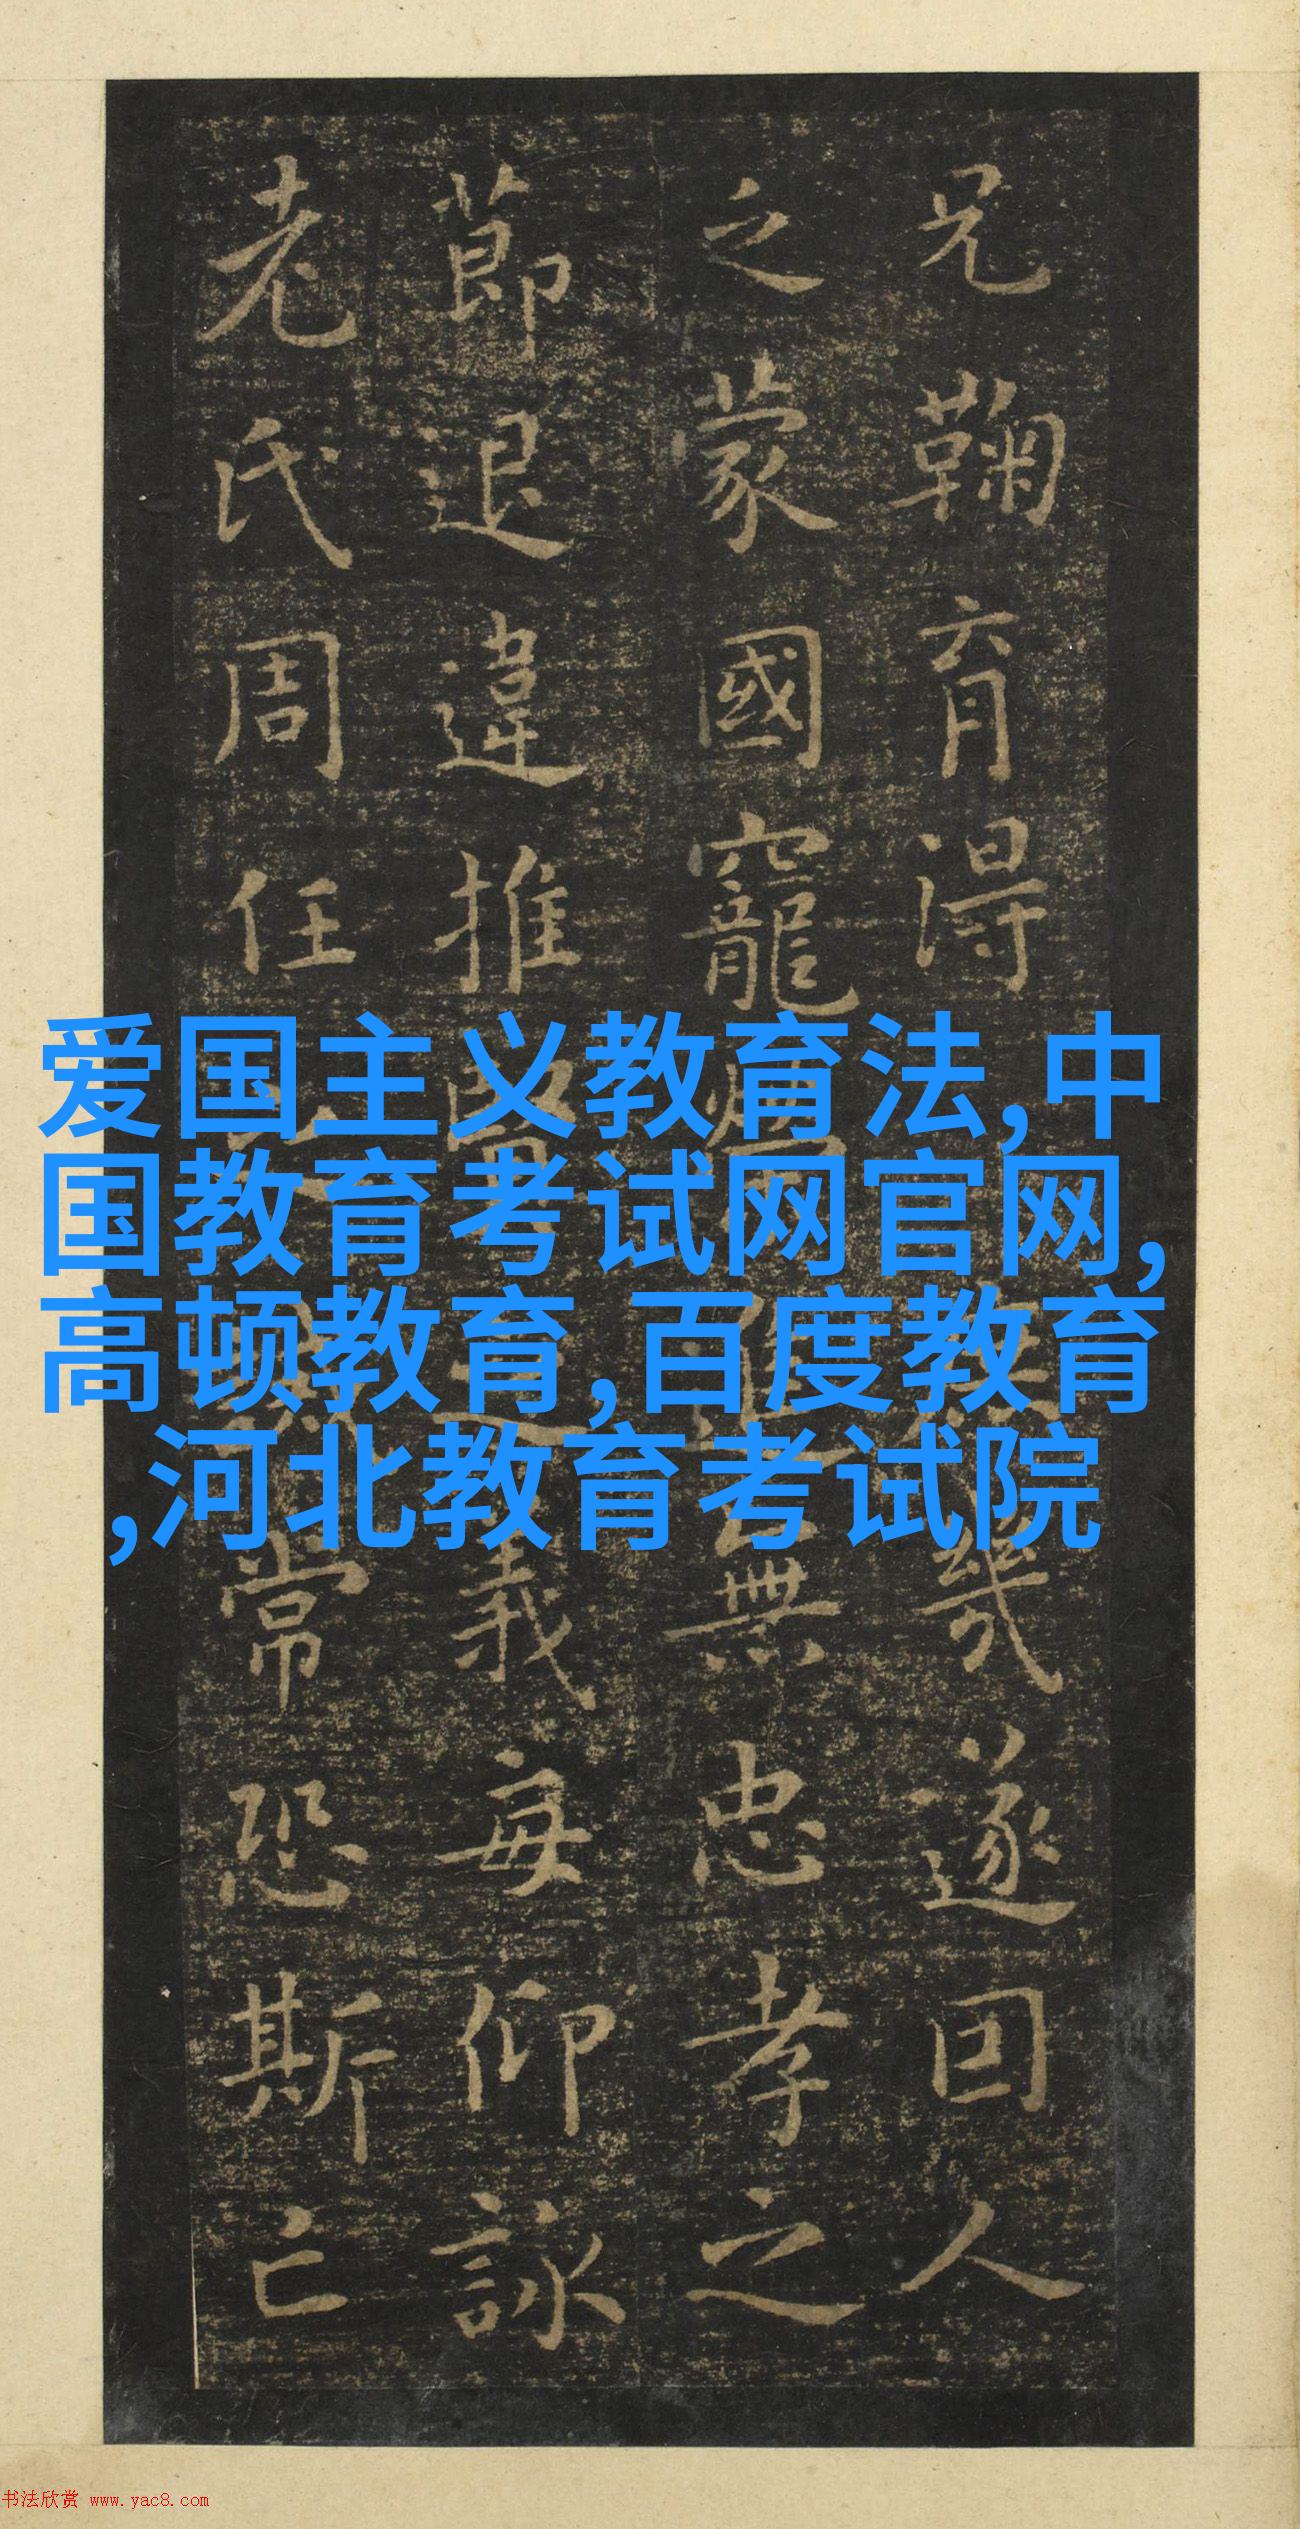 兄鞠育得幾遂因人
之蒙國寵無忠孝之
莭退違推義每仰詠
老氏周任常恐斯亡
爱国主义教育法,中
国教育考试网官网,
高顿教育,百度教育
,河北教育考试院
书法欣赏 www.yac8.com